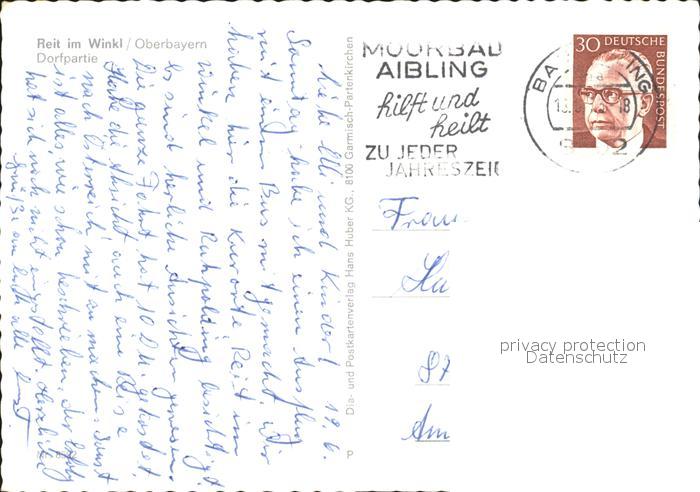 Reit im Winkl / Oberbayern
Dorfpartie
MOORBAD
AIBLING
hilft und
heilt
ZU JEDER
JAHRESZEIT
30 DEUTSCHE
BUNDESPOST
19. 6.
Liebe Elli und Kinder!
Samstag habe ich einen Ausflug
mit einem Bus mitgemacht. Wir
haben hier die Kurorte Reit im
Winkel und Ruhpolding besichtigt
es sind herliche Ansichten gewesen.
Die ganze Fahrt hat 10 DM. gekostet
Hatte die Absicht auch eine Reise
nach Österreich mit zu machen. Sonst
ist alles wie schon beschrieben, der Erfolg
hat sich noch nicht eingestellt. Herzliche
Grüße an Euch alle
Dia- und Postkartenverlag Hans Huber KG., 8100 Garmisch-Partenkirchen
P
Frau
Ha
St
Am
privacy protection
Datenschutz